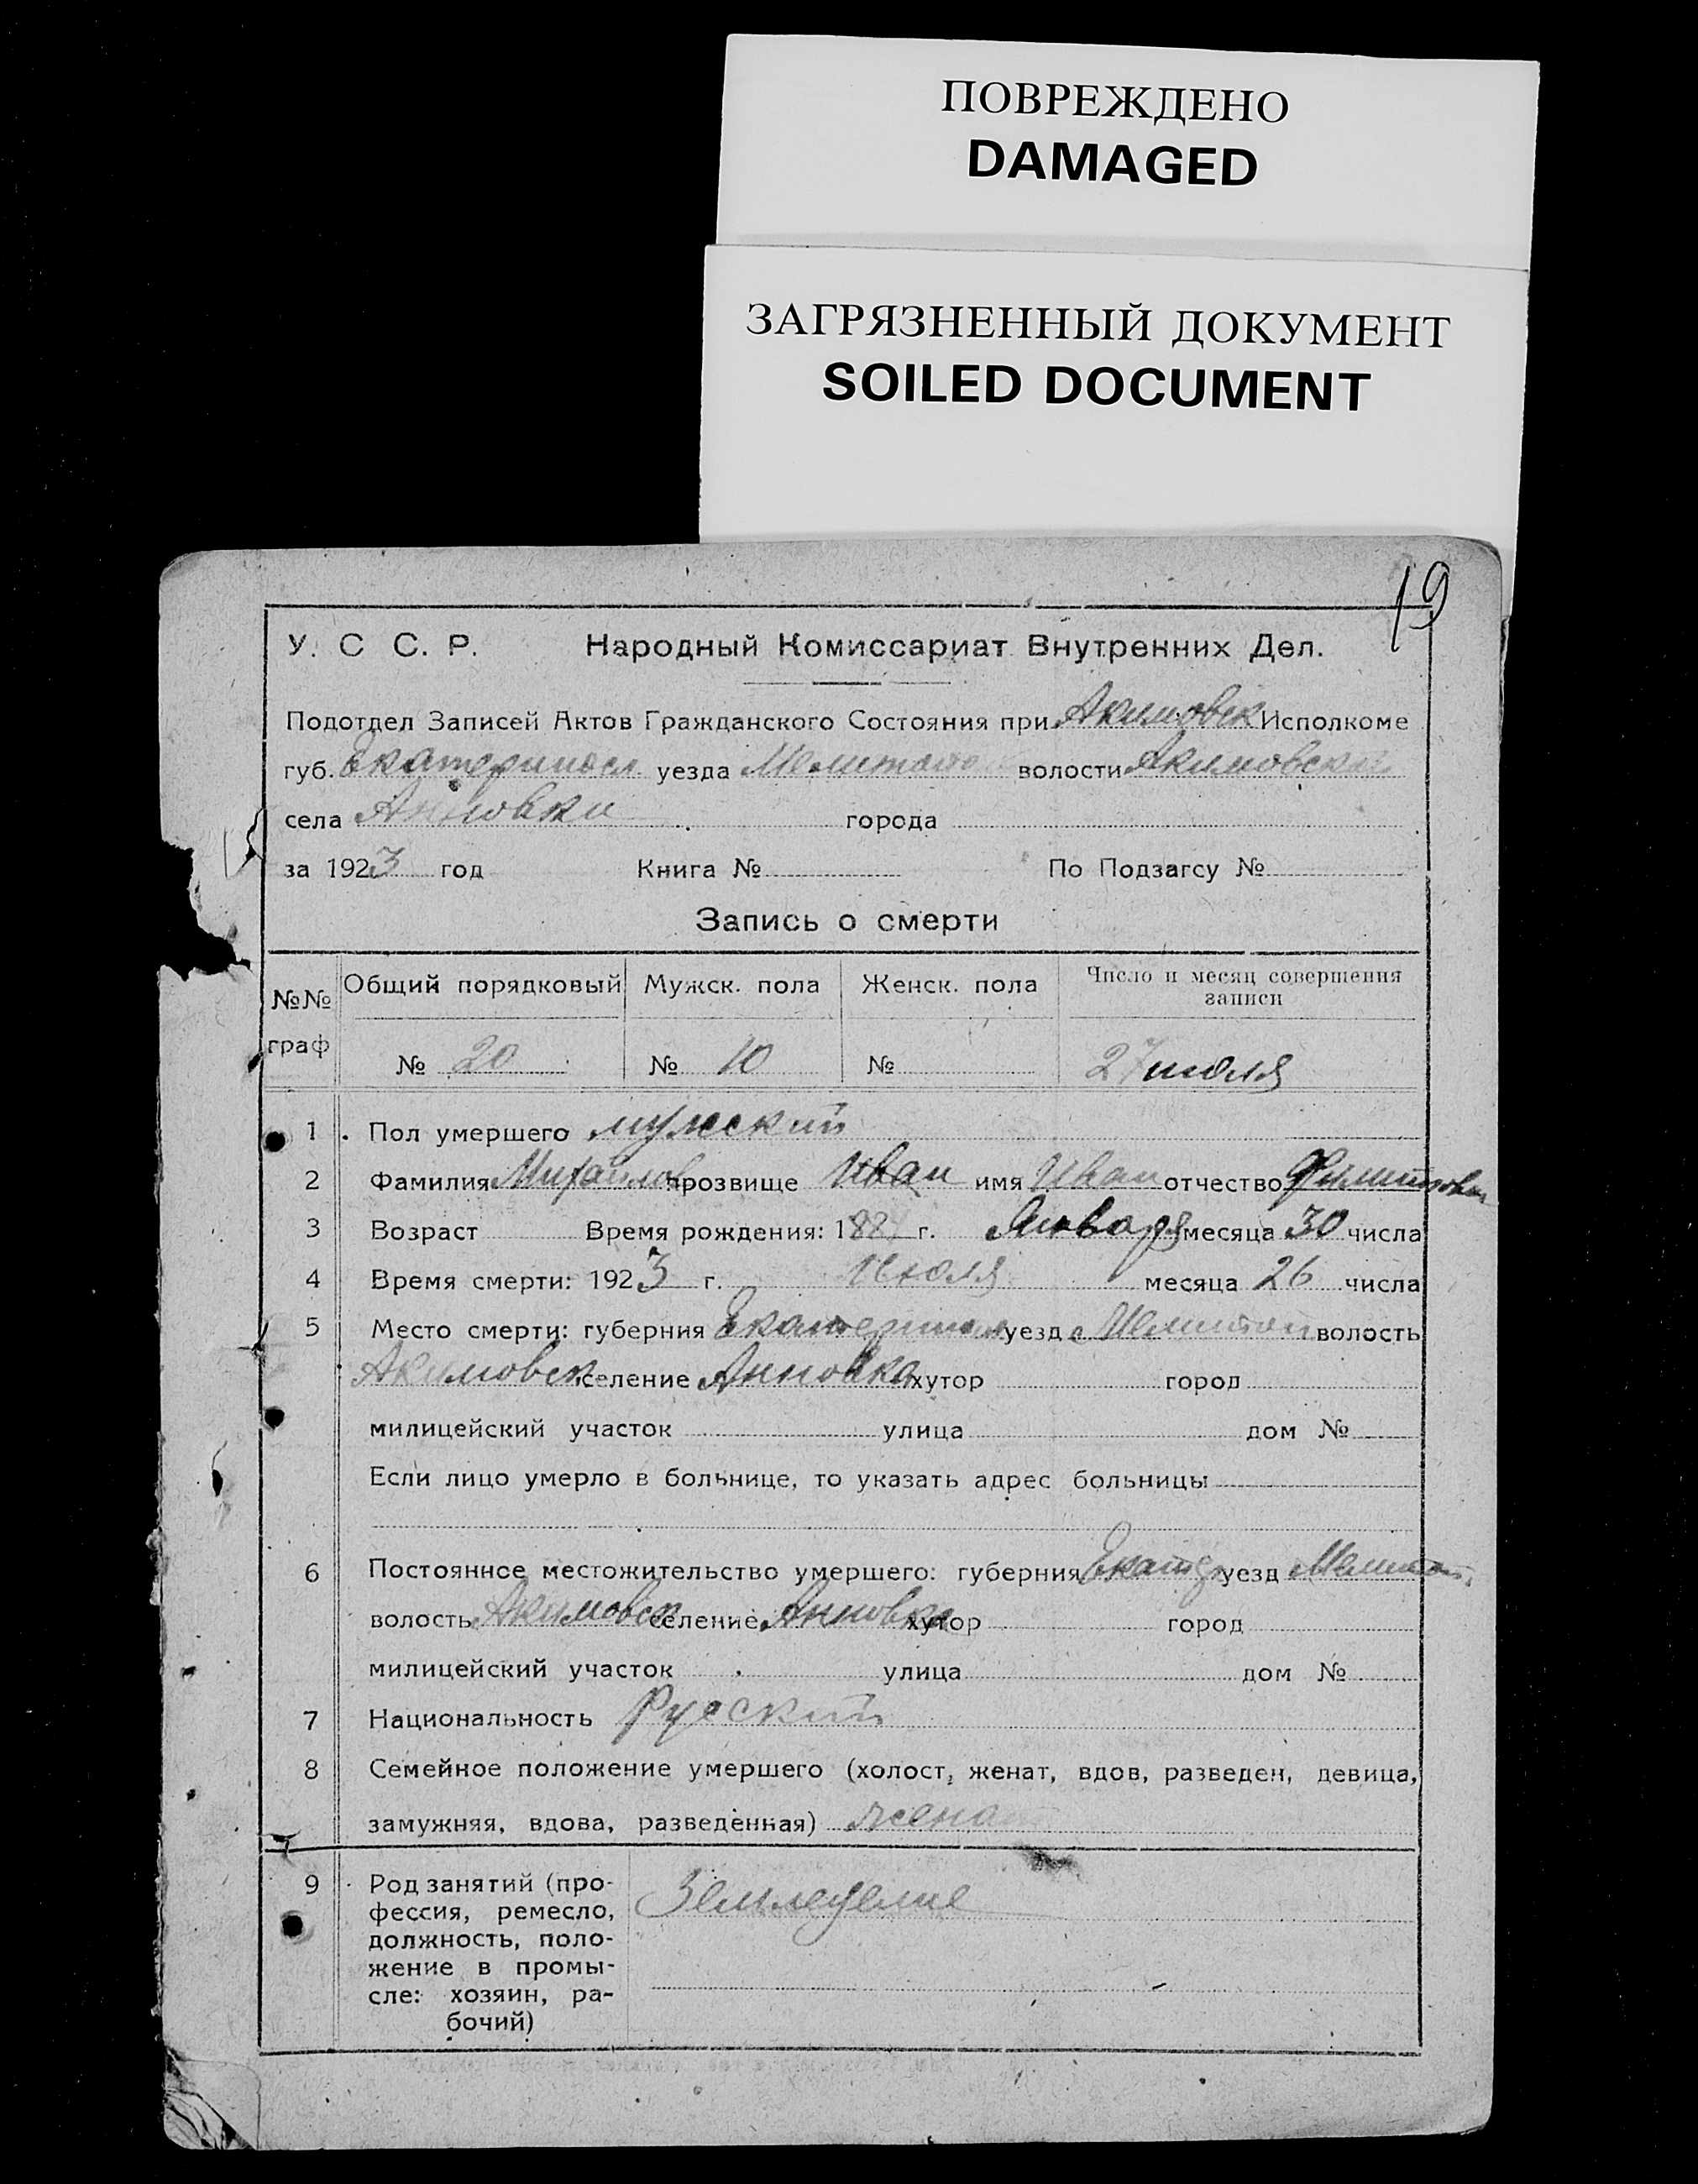 ПОВРЕЖДЕНО
DAMAGED
ЗАГРЯЗНЕННЫЙ ДОКУМЕНТ
SOILED DOCUMENT
19
У. С С. Р. Народный Комиссариат Внутренних Дел.
Подотдел Записей Актов Гражданского Состояния при Акимовск Исполкоме
губ. Екатериносл уезда Мелитопо волости Акимовской
села Анновки города
за 1923 год Книга № По Подзагсу №
Запись о смерти
№№ граф Общий порядковый Мужск. пола Женск. пола Число и месяц совершения записи
№ 20 № 10 № 27 июля
1 Пол умершего мужский
2 Фамилия Михайлов прозвище Иван имя Иван отчество Филиппович
3 Возраст Время рождения: 188 г. Января месяца 30 числа
4 Время смерти: 1923 г. Июля месяца 26 числа
5 Место смерти: губерния Екатериносл уезд Мелитоп волость
Акимовск селение Анновка хутор город
милицейский участок улица дом №
Если лицо умерло в больнице, то указать адрес больницы
6 Постоянное местожительство умершего: губерния Екатер уезд Мелитоп.
волость Акимовск селение Анновка хутор город
милицейский участок улица дом №
7 Национальность Русский
8 Семейное положение умершего (холост, женат, вдов, разведен, девица,
замужняя, вдова, разведенная) женат
9 Род занятий (про- Земледелие
фессия, ремесло,
должность, поло-
жение в промы-
сле: хозяин, ра-
бочий)